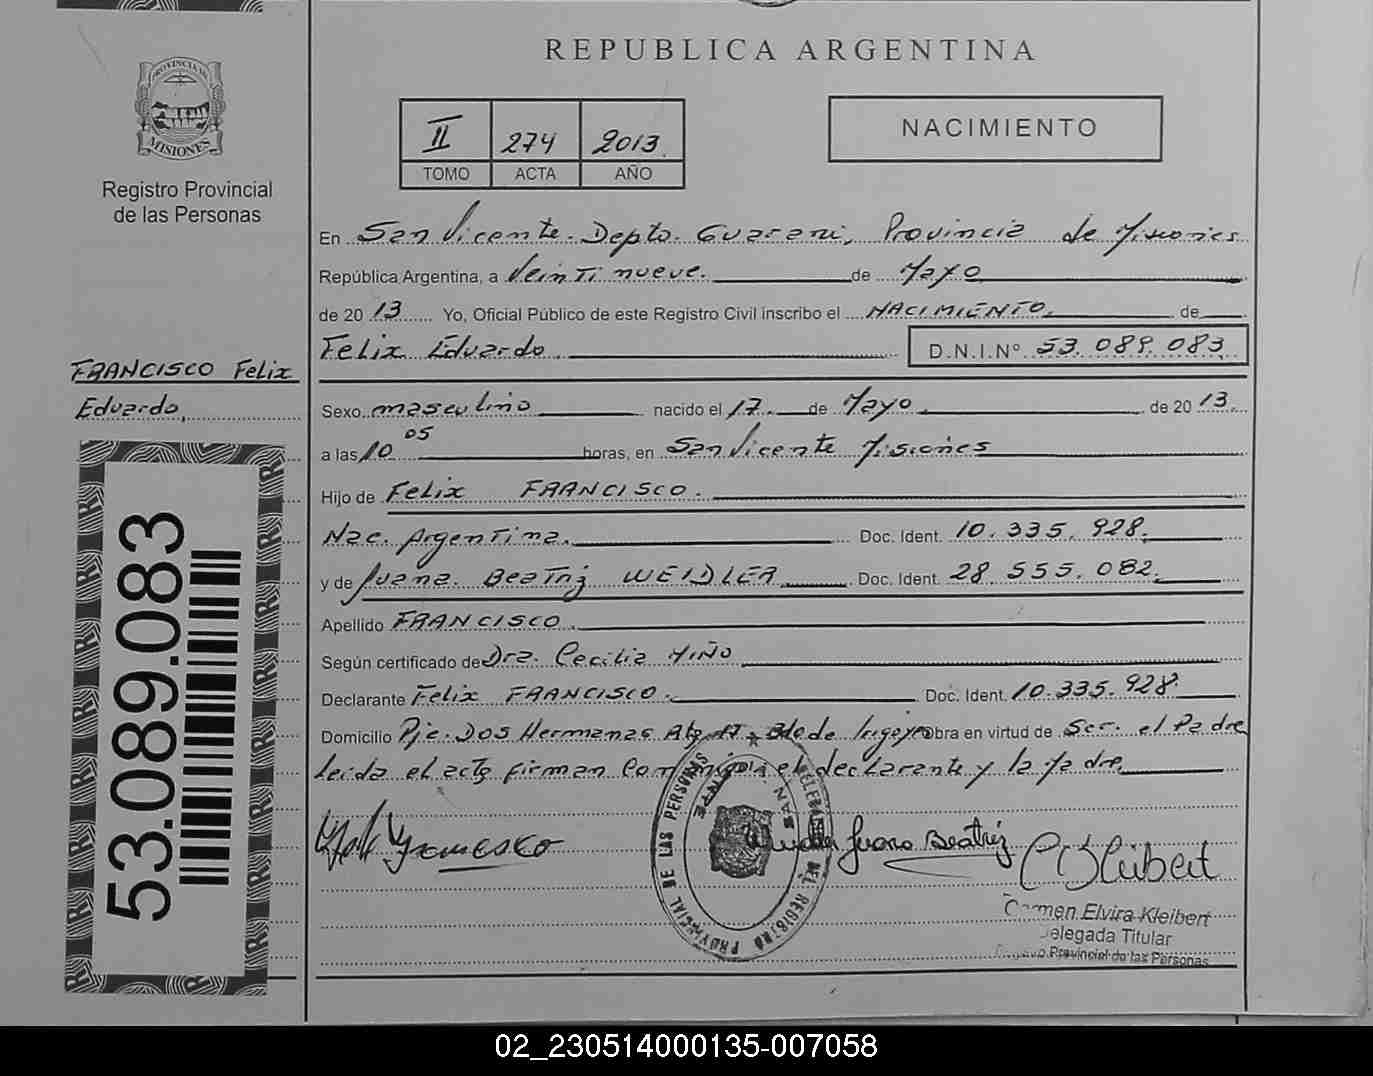 REPUBLICA ARGENTINA
PROVINCIA DE
MISIONES
Registro Provincial
de las Personas
II 274 2013
TOMO ACTA AÑO
NACIMIENTO
En San Vicente. Depto. Guarani, Provincia de Misiones
República Argentina, a Veintinueve. de Mayo
de 20 13 Yo, Oficial Público de este Registro Civil inscribo el NACIMIENTO. de
Felix Eduardo D.N.I.Nº 53.089.083
FRANCISCO Felix
Eduardo,
Sexo masculino nacido el 17. de Mayo de 20 13.
a las 10 05 horas, en San Vicente Misiones
Hijo de Felix FRANCISCO.
Nac. Argentina. Doc. Ident. 10.335.928.
y de Juana. Beatriz WEIDLER Doc. Ident. 28.555.082.
Apellido FRANCISCO.
Según certificado de Dra. Cecilia MIÑO
Declarante Felix FRANCISCO. Doc. Ident. 10.335.928
Domicilio Pje. Dos Hermanas de Irigoyen obra en virtud de Ser. el Padre
Leida el acta firman conmigo el declarante y la Madre.
53.089.083
Francisco
Juana Beatriz
Kleibert
PROVINCIAL DE LAS PERSONAS
DEL REGISTRO
Carmen Elvira Kleibert
Delegada Titular
Registro Provincial de las Personas
02_230514000135-007058